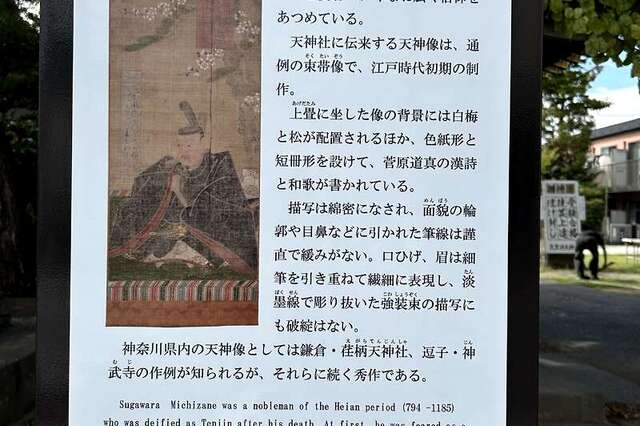 あつめている。
天神社に伝来する天神像は、通
例の束帯像で、江戸時代初期の制
作。
上畳に坐した像の背景には白梅
と松が配置されるほか、色紙形と
短冊形を設けて、菅原道真の漢詩
と和歌が書かれている。
描写は綿密になされ、面貌の輪
郭や目鼻などに引かれた筆線は謹
直で緩みがない。口ひげ、眉は細
筆を引き重ねて繊細に表現し、淡
墨線で彫り抜いた強装束の描写に
も破綻はない。
神奈川県内の天神像としては鎌倉・荏柄天神社、逗子・神
武寺の作例が知られるが、それらに続く秀作である。
Sugawara Michizane was a nobleman of the Heian period (794 -1185)
who was deified as Tenjin after his death. At first, he was feared as a